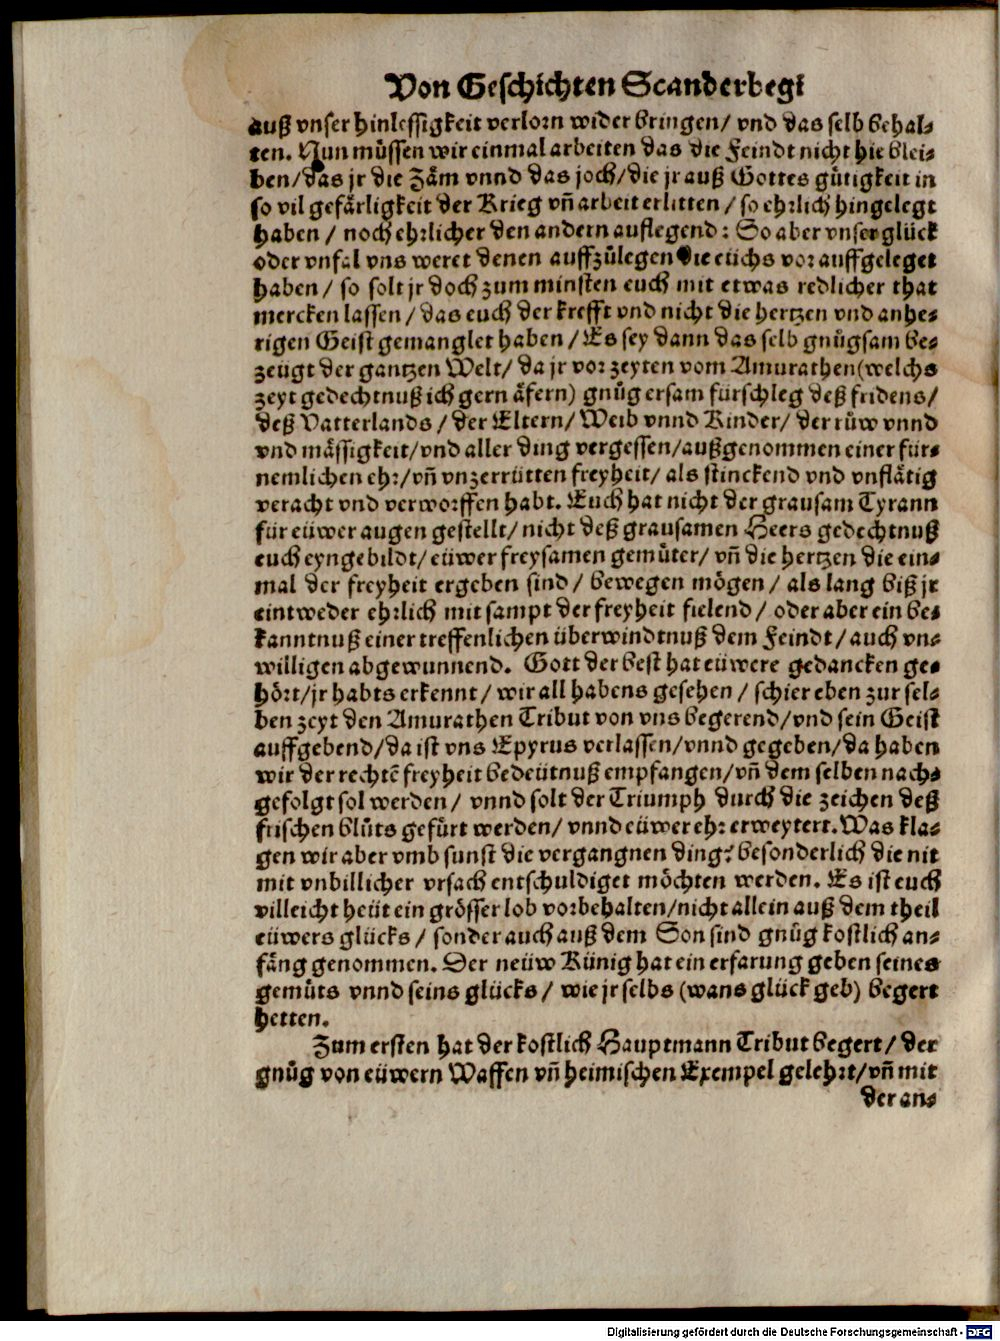 Von Geschichten Scanderbegi
auß vnser hinlessigkeit verlorn wider bringen/ vnd das selb behal-
ten. Nun müssen wir einmal arbeiten das die Feindt nicht hie blei-
ben/das jr die Zäm vnnd das joch/die jr auß Gottes gütigkeit in
so vil gefärligkeit der Krieg vñ arbeit erlitten / so ehrlich hingelegt
haben / noch ehrlicher den andern auflegend: So aber vnser glück
oder vnfal vns weret denen auffzůlegen die eüchs vor auffgeleget
haben / so solt jr doch zum minsten euch mit etwas redlicher that
mercken lassen / das euch der krefft vnd nicht die hertzen vnd anhe-
rigen Geist gemanglet haben / Es sey dann das selb gnůgsam be-
zeügt der gantzen Welt/ da jr vor zeyten vom Amurathen (welchs
zeyt gedechtnuß ich gern äfern) gnůg ersam fürschleg deß fridens/
deß Vatterlands / der Eltern/ Weib vnnd Kinder/ der růw vnnd
vnd mässigkeit/vnd aller ding vergessen/außgenommen einer für-
nemlichen ehr/vñ vnzerrütten freyheit/ als stinckend vnd vnflätig
veracht vnd verworffen habt. Euch hat nicht der grausam Tyrann
für eüwer augen gestellt/ nicht deß grausamen Heers gedechtnuß
euch eyngebildt/ eüwer freysamen gemůter/ vñ die hertzen die ein-
mal der freyheit ergeben sind / bewegen mögen / als lang biß jr
eintweder ehrlich mit sampt der freyheit fielend / oder aber ein be-
kanntnuß einer treffenlichen überwindtnuß dem Feindt / auch vn-
willigen abgewunnend. Gott der best hat eüwere gedancken ge-
hört/jr habts erkennt/ wir all habens gesehen / schier eben zur sel-
ben zeyt den Amurathen Tribut von vns begerend/vnd sein Geist
auffgebend/da ist vns Epyrus verlassen/vnnd gegeben/da haben
wir der rechtẽ freyheit bedeütnuß empfangen/vñ dem selben nach-
gefolgt sol werden / vnnd solt der Triumph durch die zeichen deß
frischen blůts gefürt werden/ vnnd eüwer ehr erweytert. Was kla-
gen wir aber vmb sunst die vergangnen ding? besonderlich die nit
mit vnbillicher vrsach entschuldiget möchten werden. Es ist euch
villeicht heüt ein grösser lob vorbehalten/nicht allein auß dem theil
eüwers glücks / sonder auch auß dem Son sind gnůg kostlich an-
fäng genommen. Der neüw Künig hat ein erfarung geben seines
gemůts vnnd seins glücks / wie jr selbs (wans glück geb) begert
hetten.
Zum ersten hat der kostlich Hauptmann Tribut begert/ der
gnůg von eüwern Waffen vñ heimischen Exempel gelehrt/vñ mit
der an-
Digitalisierung gefördert durch die Deutsche Forschungsgemeinschaft - DFG